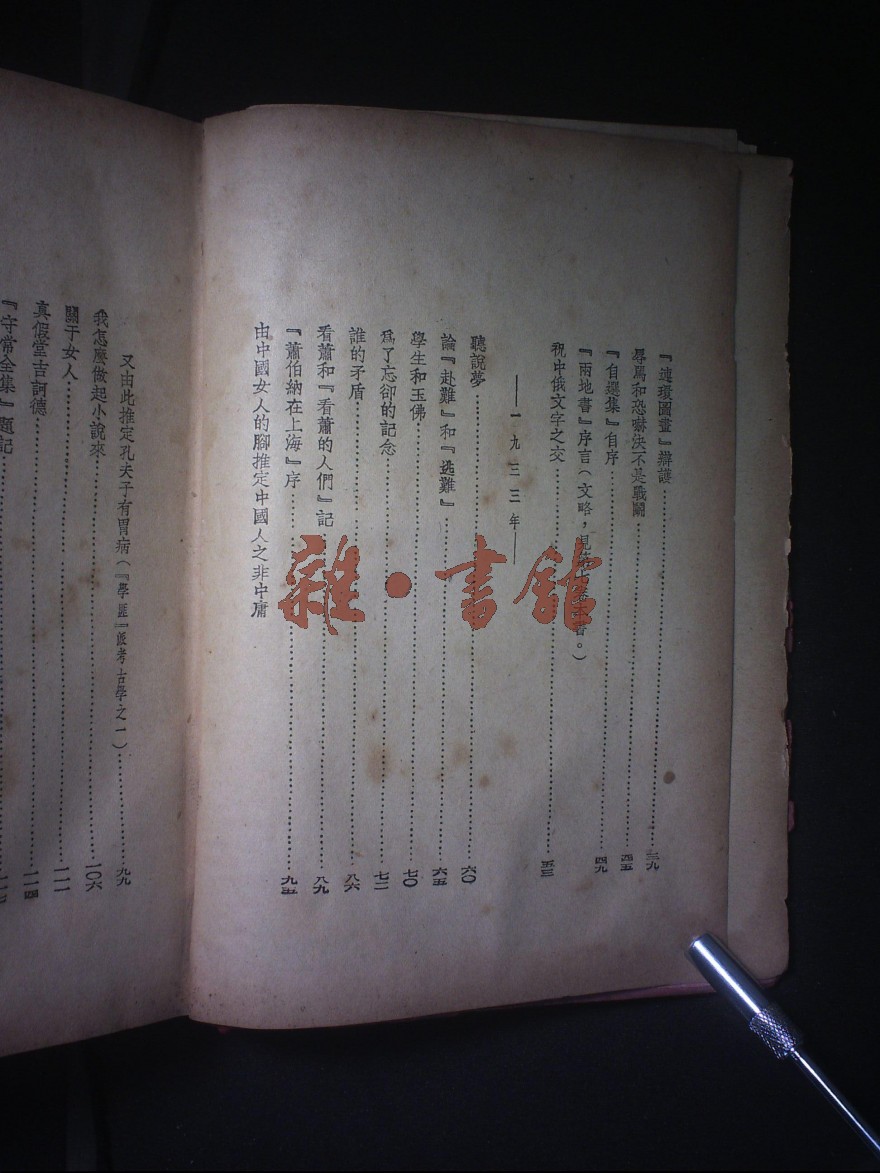 『連環圖畫』辯護……三九
辱罵和恐嚇決不是戰鬭……四五
『自選集』自序……四九
『兩地書』序言(文略,見第七卷本書。)
祝中俄文字之交……五三
——一九三三年——
聽說夢……六〇
論『赴難』和『逃難』……六五
學生和玉佛……七〇
爲了忘卻的記念……七二
誰的矛盾……八六
看蕭和『看蕭的人們』記……八九
『蕭伯納在上海』序……九五
由中國女人的腳推定中國人之非中庸
又由此推定孔夫子有胃病(『學匪』派考古學之一)……九九
我怎麼做起小說來……一〇六
關于女人……一一一
真假堂吉訶德……一一四
『守常全集』題記
雜·書館